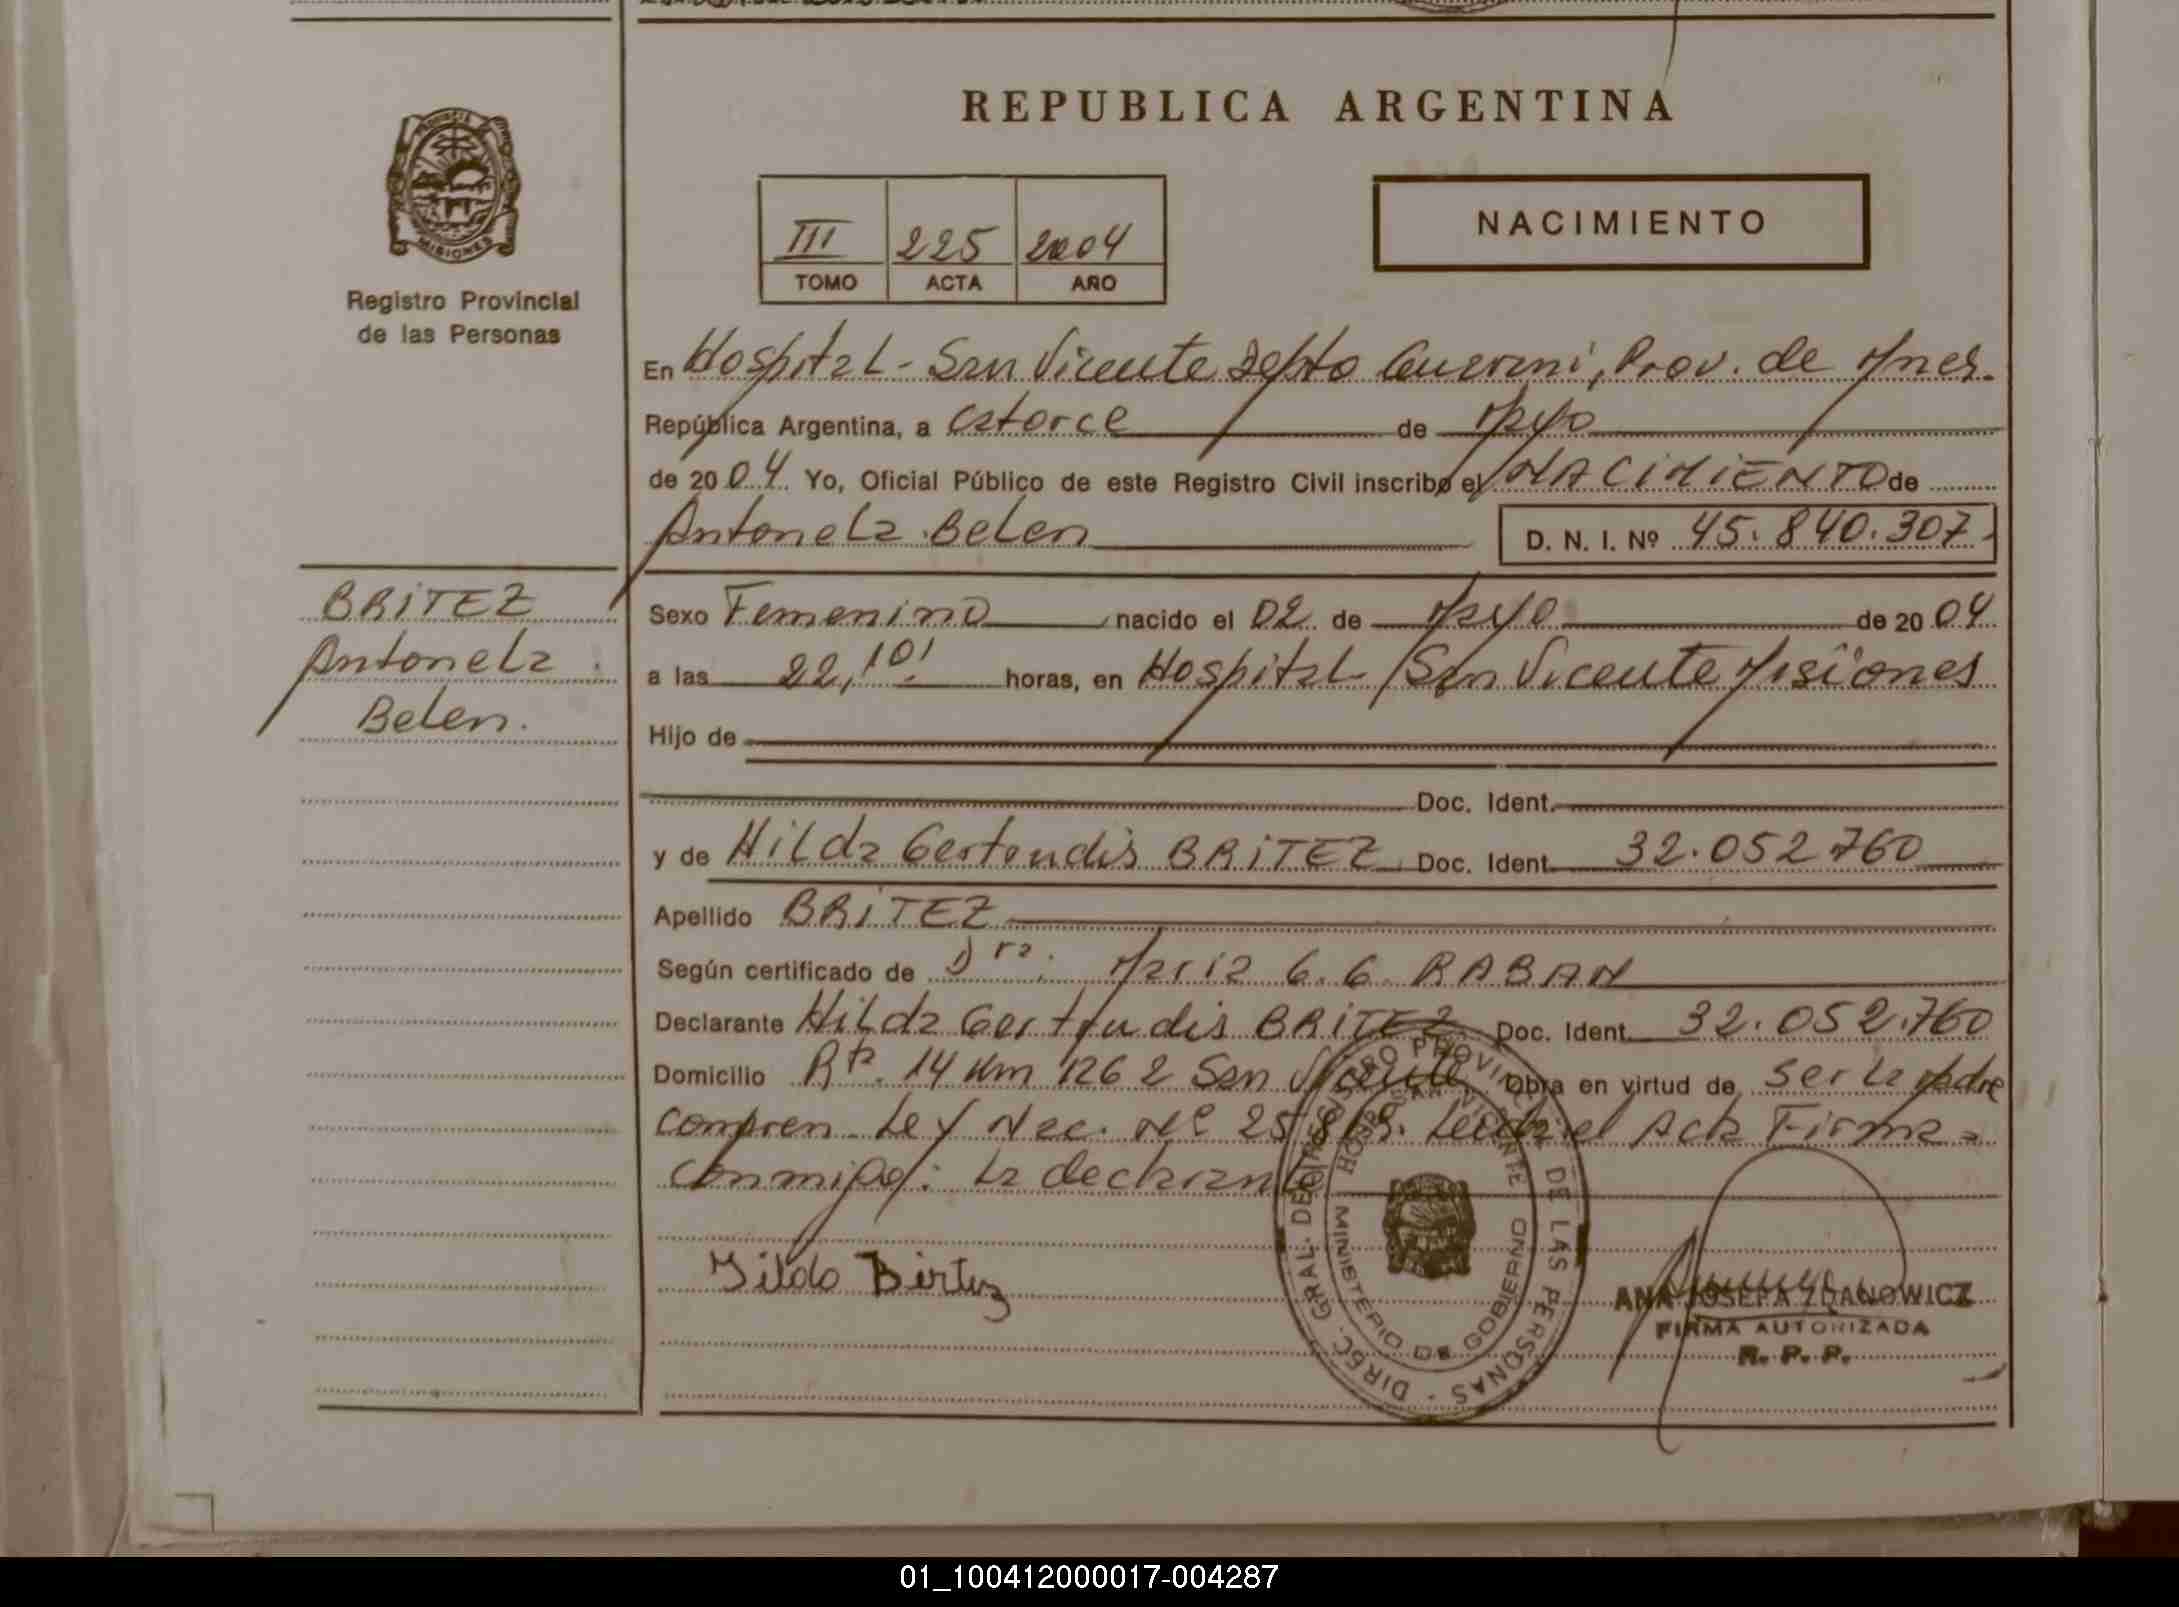 REPUBLICA ARGENTINA
PROVINCIA DE
MISIONES
Registro Provincial
de las Personas
III 225 2004
TOMO ACTA AÑO
NACIMIENTO
En Hospital - San Vicente Depto Guaraní, Prov. de Mnes.
República Argentina, a Catorce de Mayo
de 2004 Yo, Oficial Público de este Registro Civil inscribo el NACIMIENTO de
Antonela Belen D. N. I. Nº 45.840.307
BRITEZ
Antonela
Belen.
Sexo Femenino nacido el 02 de Mayo de 2004
a las 22,10' horas, en Hospital San Vicente Misiones
Hijo de
Doc. Ident.
y de Hilda Gertrudis BRITEZ Doc. Ident. 32.052.760
Apellido BRITEZ
Según certificado de Dra. Maria G. G. RABAN
Declarante Hilda Gertrudis BRITEZ Doc. Ident. 32.052.760
Domicilio Rta. 14 Km 1262 San Vicente Obra en virtud de ser la Madre
compren. Ley Nac. Nº 25.819. Leida el Acta Firma
Conmigo: la declarante
DIREC. GRAL. DEL REGISTRO PROVINCIAL DE LAS PERSONAS
HOSP. SAN VICENTE
MINISTERIO DE GOBIERNO
ANA JOSEFA ZDANOWICZ
FIRMA AUTORIZADA
R. P. P.
01_100412000017-004287